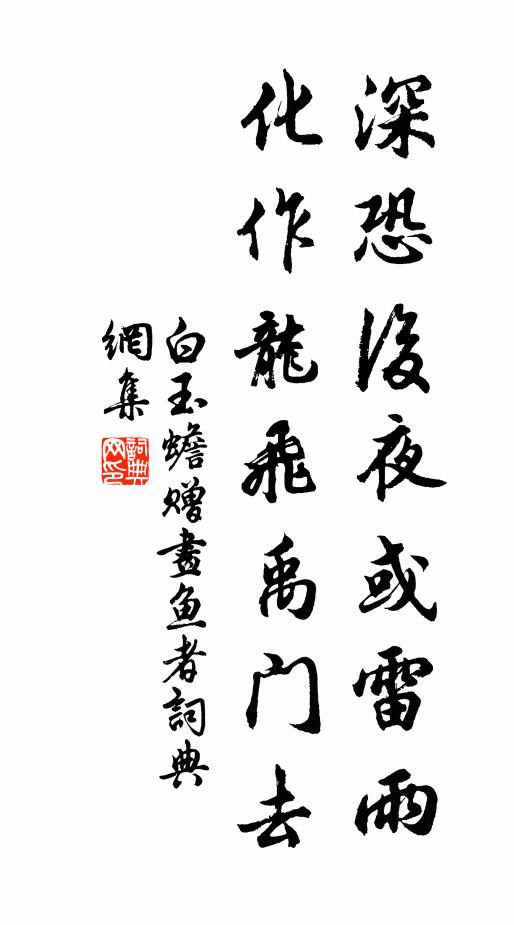 深恐後夜或雷雨
化作龍飛禹門去
白玉蟾贈畫魚者詞典
網集
詞典網印